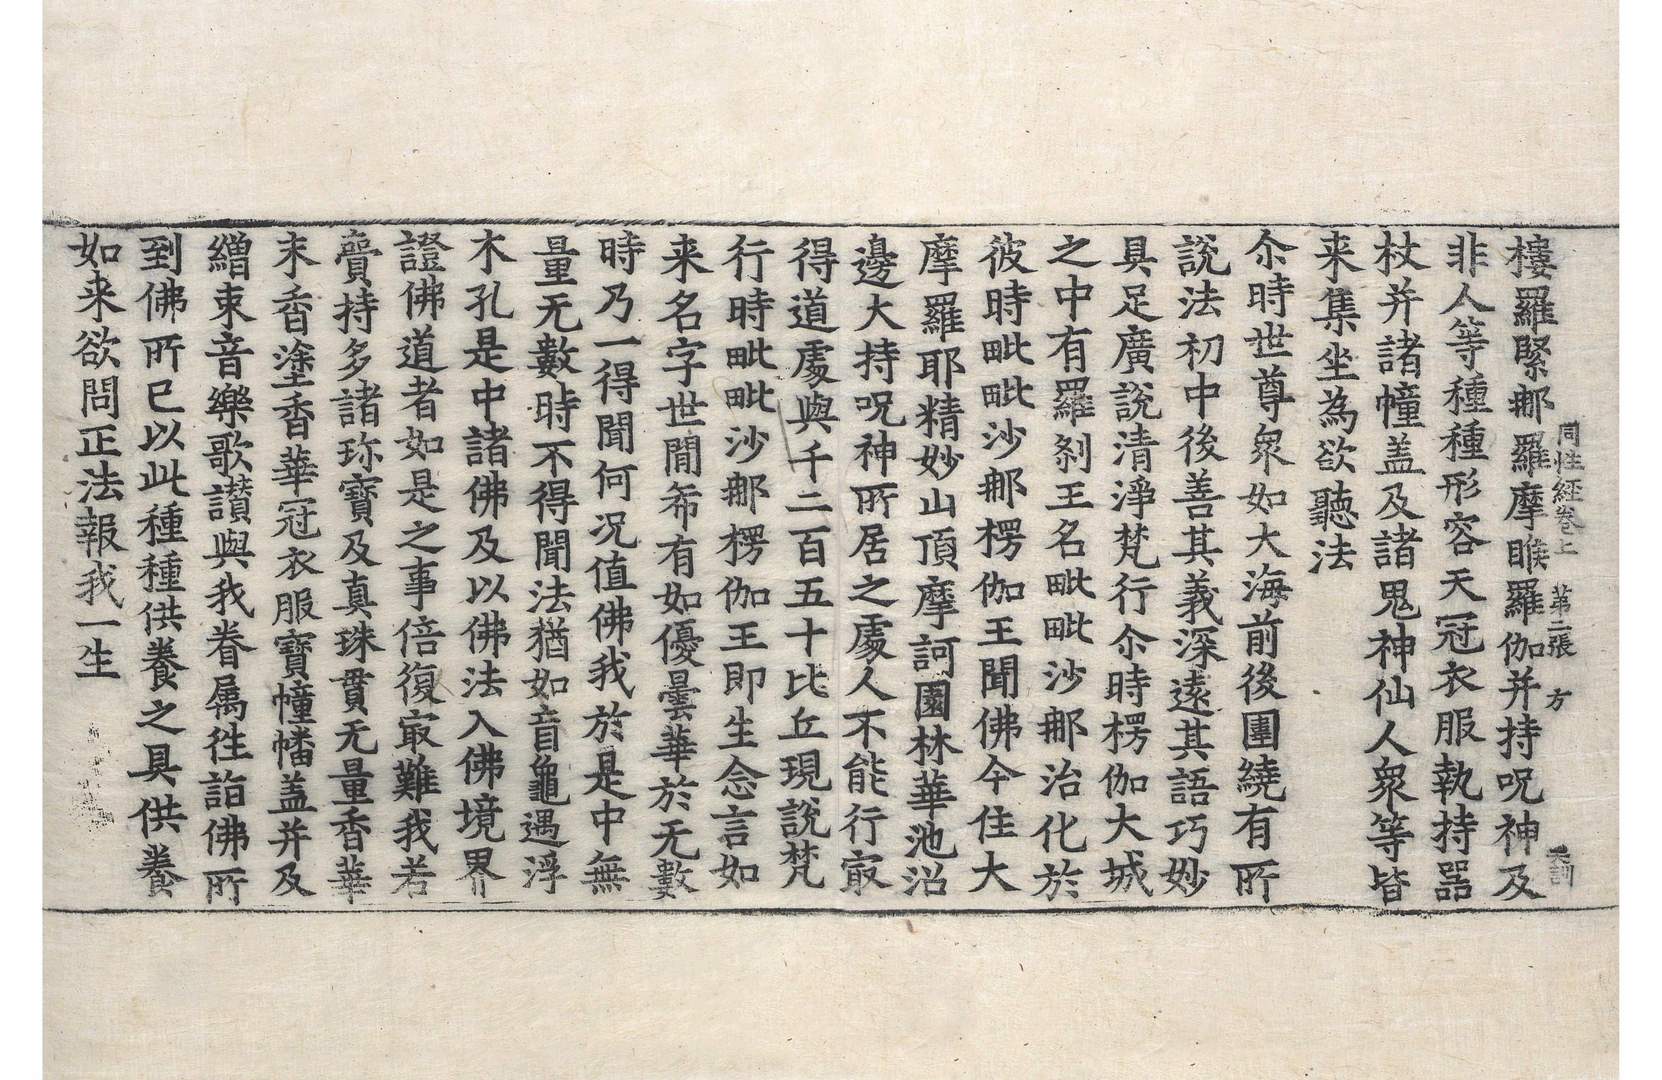 同性經卷上　第二張　方
樓羅緊那羅摩睺羅伽并持呪神及
非人等種種形容天冠衣服執持器
杖并諸幢盖及諸鬼神仙人衆等皆
来集坐為欲聽法
尒時世尊衆如大海前後圍繞有所
說法初中後善其義深遠其語巧妙
具足廣說清淨梵行尒時楞伽大城
之中有羅剎王名毗毗沙那治化於
彼時毗毗沙那楞伽王聞佛今住大
摩羅耶精妙山頂摩訶園林華池沼
邊大持呪神所居之處人不能行㝡
得道處與千二百五十比丘現說梵
行時毗毗沙那楞伽王即生念言如
来名字世間希有如優曇華於无數
時乃一得聞何况值佛我於是中無
量无數時不得聞法猶如盲龜遇浮
木孔是中諸佛及以佛法入佛境界
證佛道者如是之事倍復㝡難我若
賷持多諸珎寶及真珠貫无量香華
末香塗香華冠衣服寶幢幡盖并及
繒束音樂歌讃與我眷属徃詣佛所
到佛所已以此種種供養之具供養
如来欲問正法報我一生